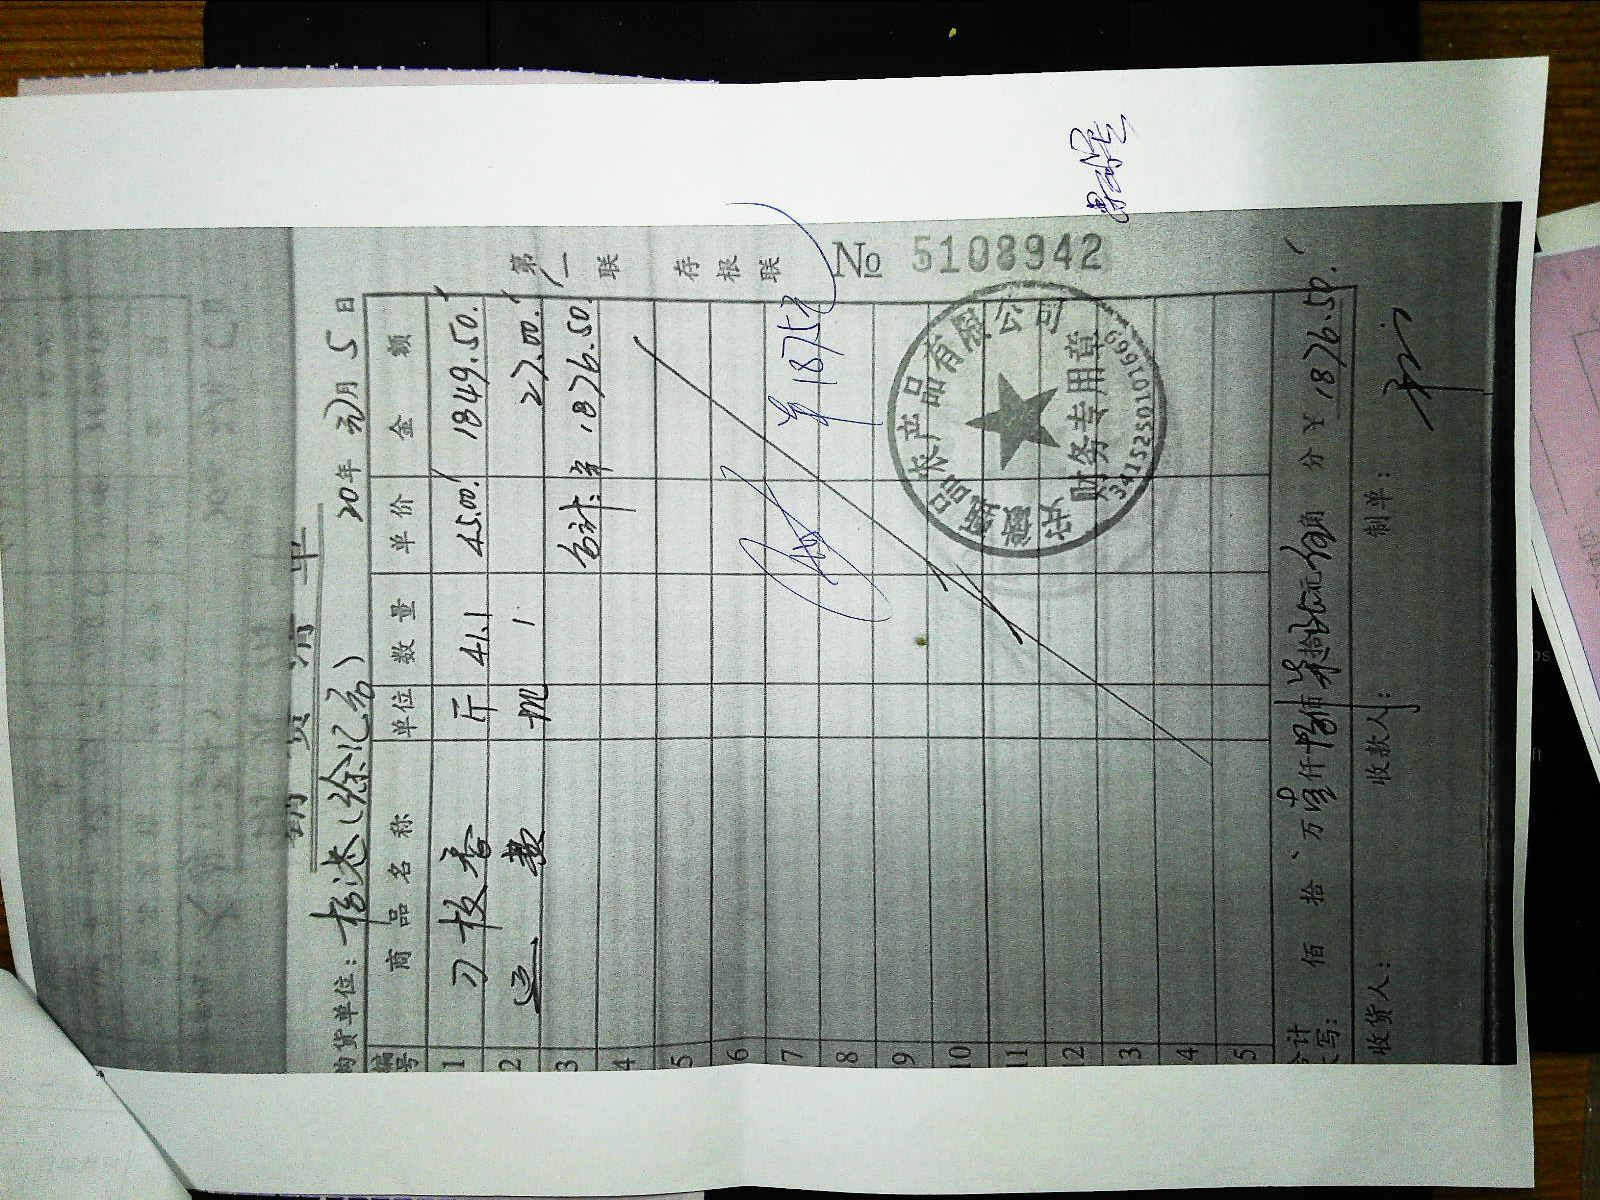 销货清单
购货单位：杨达（徐汇店） 20年元月5日
编号 商品名称 单位 数量 单价 金额
1 刀板香 斤 41.1 45.00 1849.50
2 运费 1 27.00
3 合计：¥1876.50
4
5
6
7 1875元
8
9
10
11
12
13
14
15
合计大写： 佰 拾 万壹仟捌佰柒拾陆元伍角 分 ¥1876.50
收货人： 收款人： 制单：
第一联 存根联
№ 5108942
农产品有限公司
财务专用章